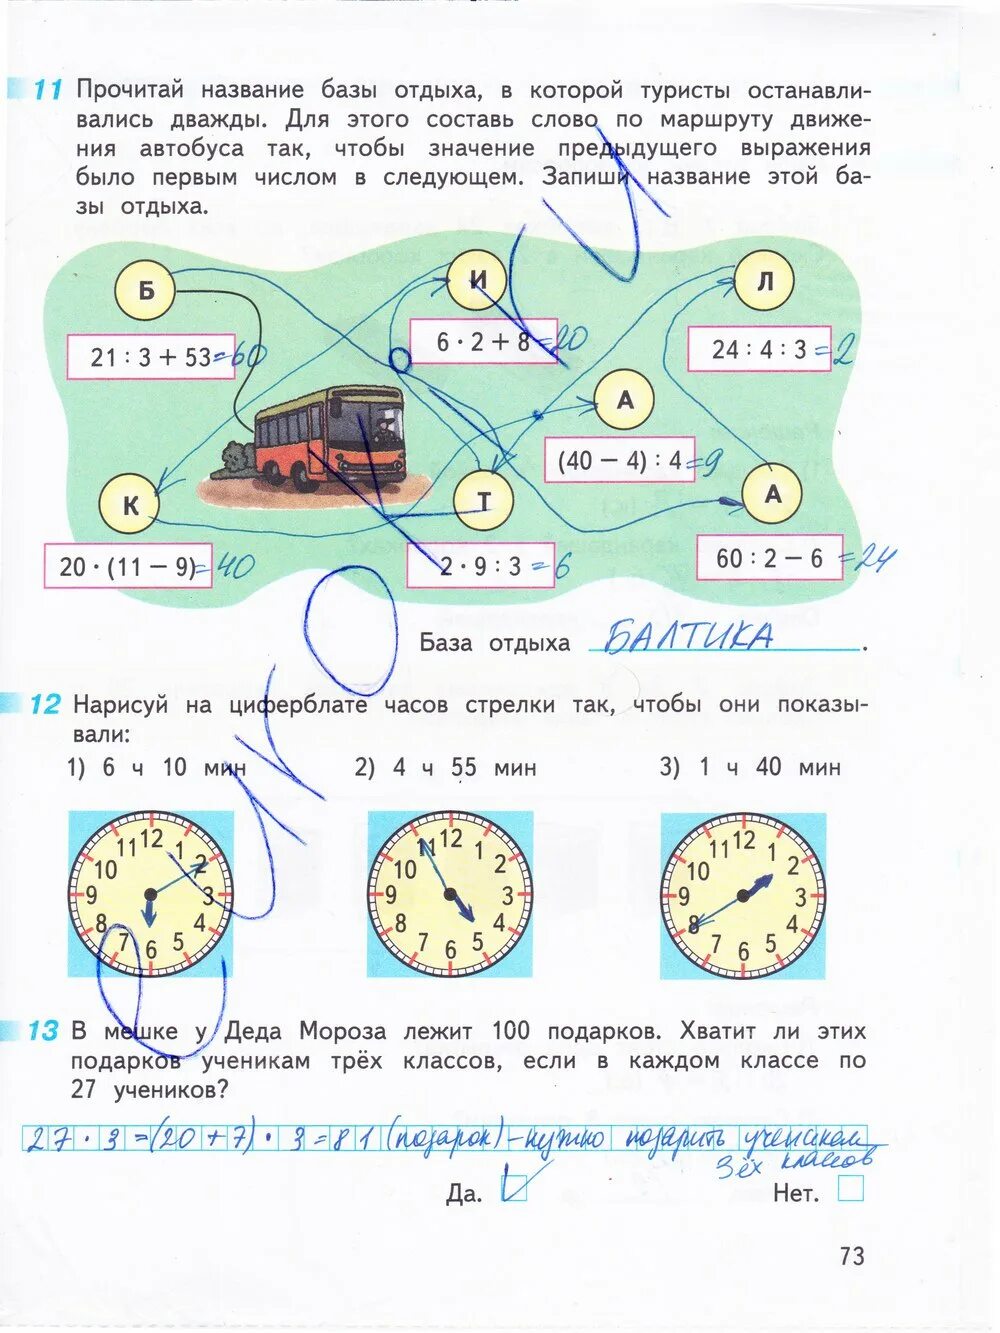 11 Прочитай название базы отдыха, в которой туристы останавли-
вались дважды. Для этого составь слово по маршруту движе-
ния автобуса так, чтобы значение предыдущего выражения
было первым числом в следующем. Запиши название этой ба-
зы отдыха.
Б И Л
21 : 3 + 53 =60 6 · 2 + 8 =20 24 : 4 : 3 =2
А
(40 − 4) : 4 =9
К Т А
20 · (11 − 9) =40 2 · 9 : 3 =6 60 : 2 − 6 =24
База отдыха БАЛТИКА.
12 Нарисуй на циферблате часов стрелки так, чтобы они показы-
вали:
1) 6 ч 10 мин 2) 4 ч 55 мин 3) 1 ч 40 мин
12 1 2 3 4 5 6 7 8 9 10 11
12 1 2 3 4 5 6 7 8 9 10 11
12 1 2 3 4 5 6 7 8 9 10 11
13 В мешке у Деда Мороза лежит 100 подарков. Хватит ли этих
подарков ученикам трёх классов, если в каждом классе по
27 учеников?
27 · 3 = (20 + 7) · 3 = 81 (подарок) - нужно подарить ученикам
3ёх классов
Да. Нет.
73